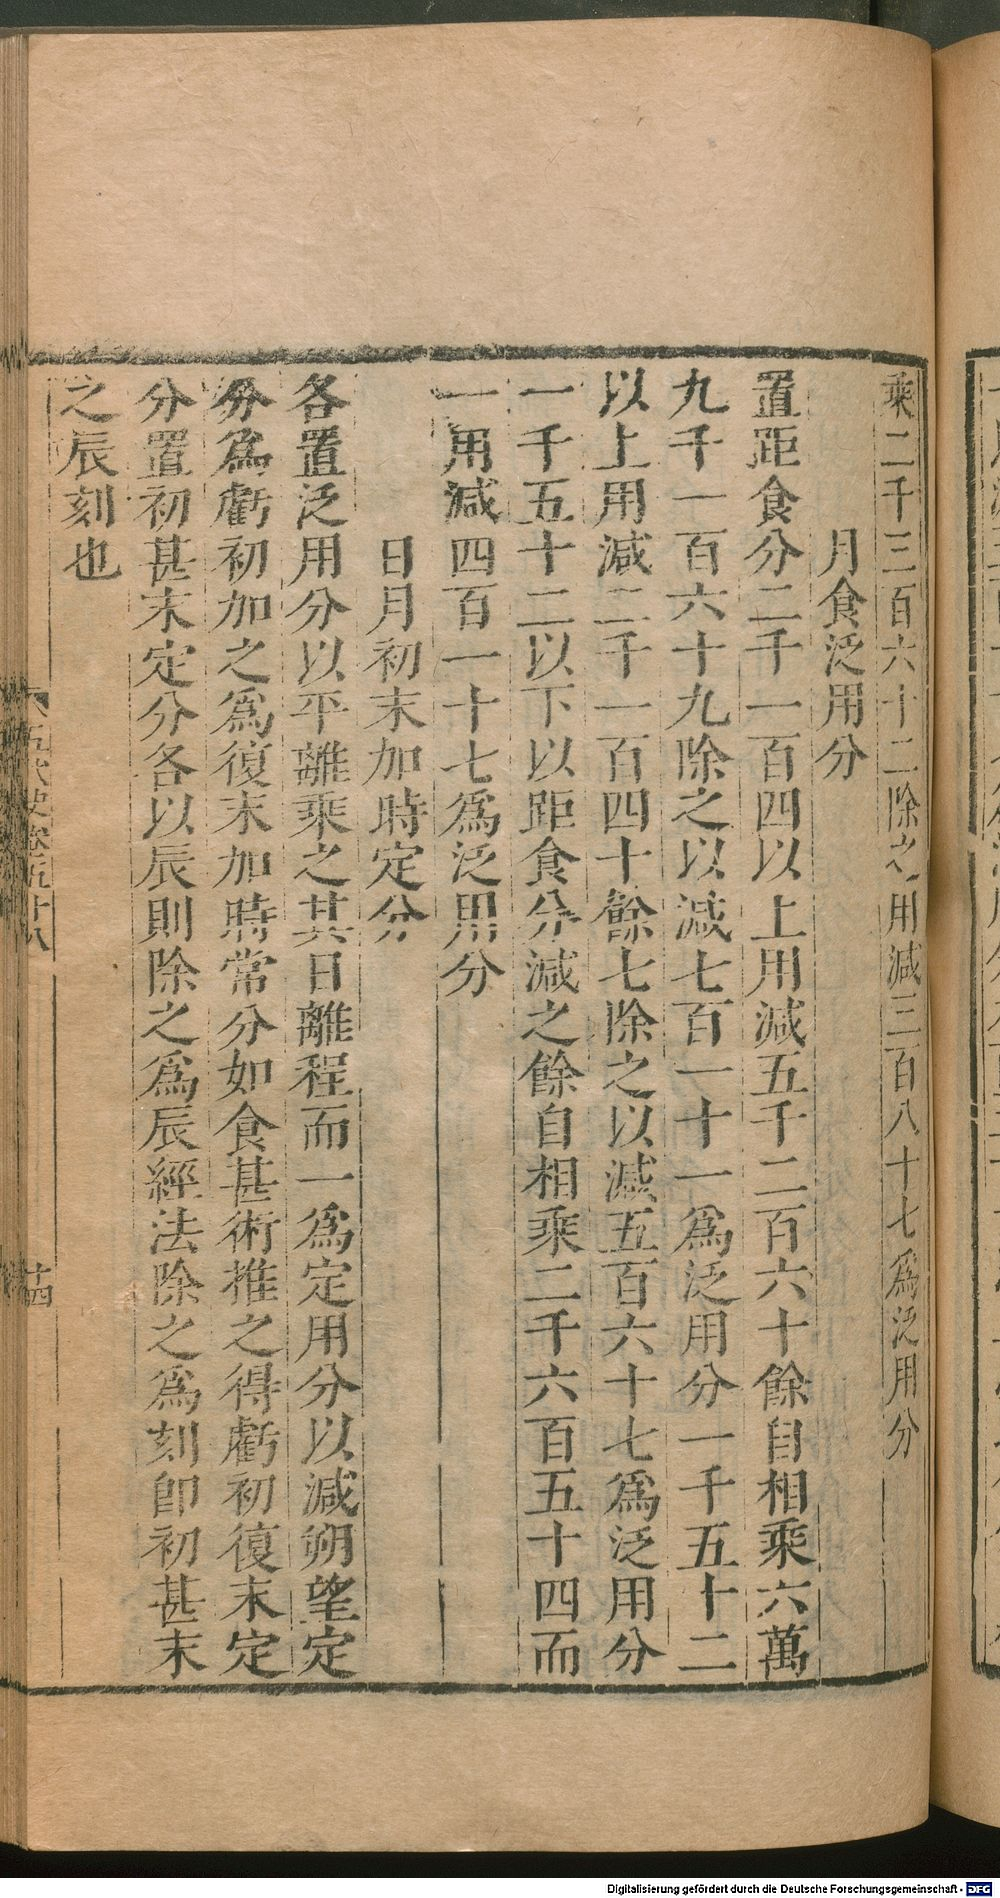 乘二千三百六十二除之用減三百八十七爲泛用分
月食泛用分
置距食分二千一百四以上用減五千二百六十餘自相乘六萬
九千一百六十九除之以減七百一十一爲泛用分一千五十二
以上用減二千一百四十餘七除之以減五百六十七爲泛用分
一千五十二以下以距食分減之餘自相乘二千六百五十四而
一用減四百一十七爲泛用分
日月初末加時定分
各置泛用分以平離乘之其日離程而一爲定用分以減朔望定
分爲虧初加之爲復末加時常分如食甚術推之得虧初復末定
分置初甚末定分各以辰則除之爲辰經法除之爲刻卽初甚末
之辰刻也
五代史卷五十八
十四
Digitalisierung gefördert durch die Deutsche Forschungsgemeinschaft - DFG